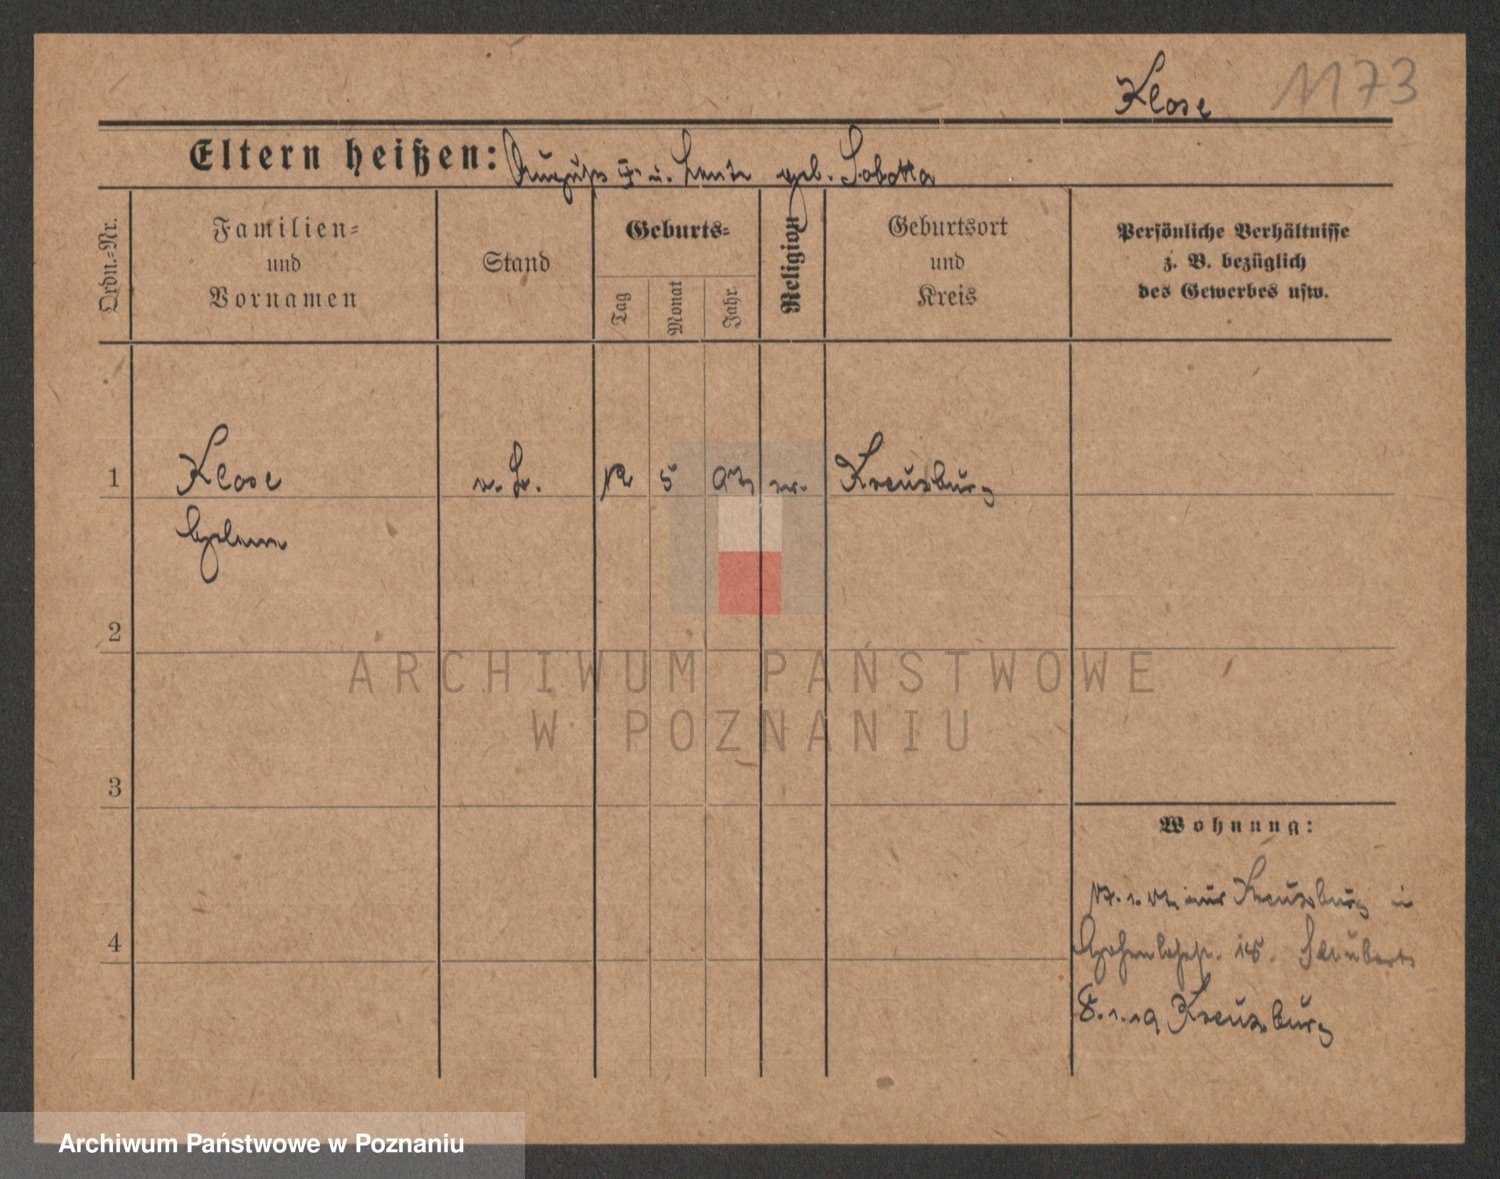 Klose 1173
Eltern heißen: August u. geb. Sobotta
Ordn.=Nr.
Familien=
und
Vornamen
Stand
Geburts=
Tag
Monat
Jahr
Religion
Geburtsort
und
Kreis
Persönliche Verhältnisse
z. B. bezüglich
des Gewerbes usw.
1 Klose 5 Kreuzburg
Helene
2
3
4
Wohnung:
aus Kreuzburg in
Schubert
Kreuzburg
ARCHIWUM PAŃSTWOWE
W POZNANIU
Archiwum Państwowe w Poznaniu